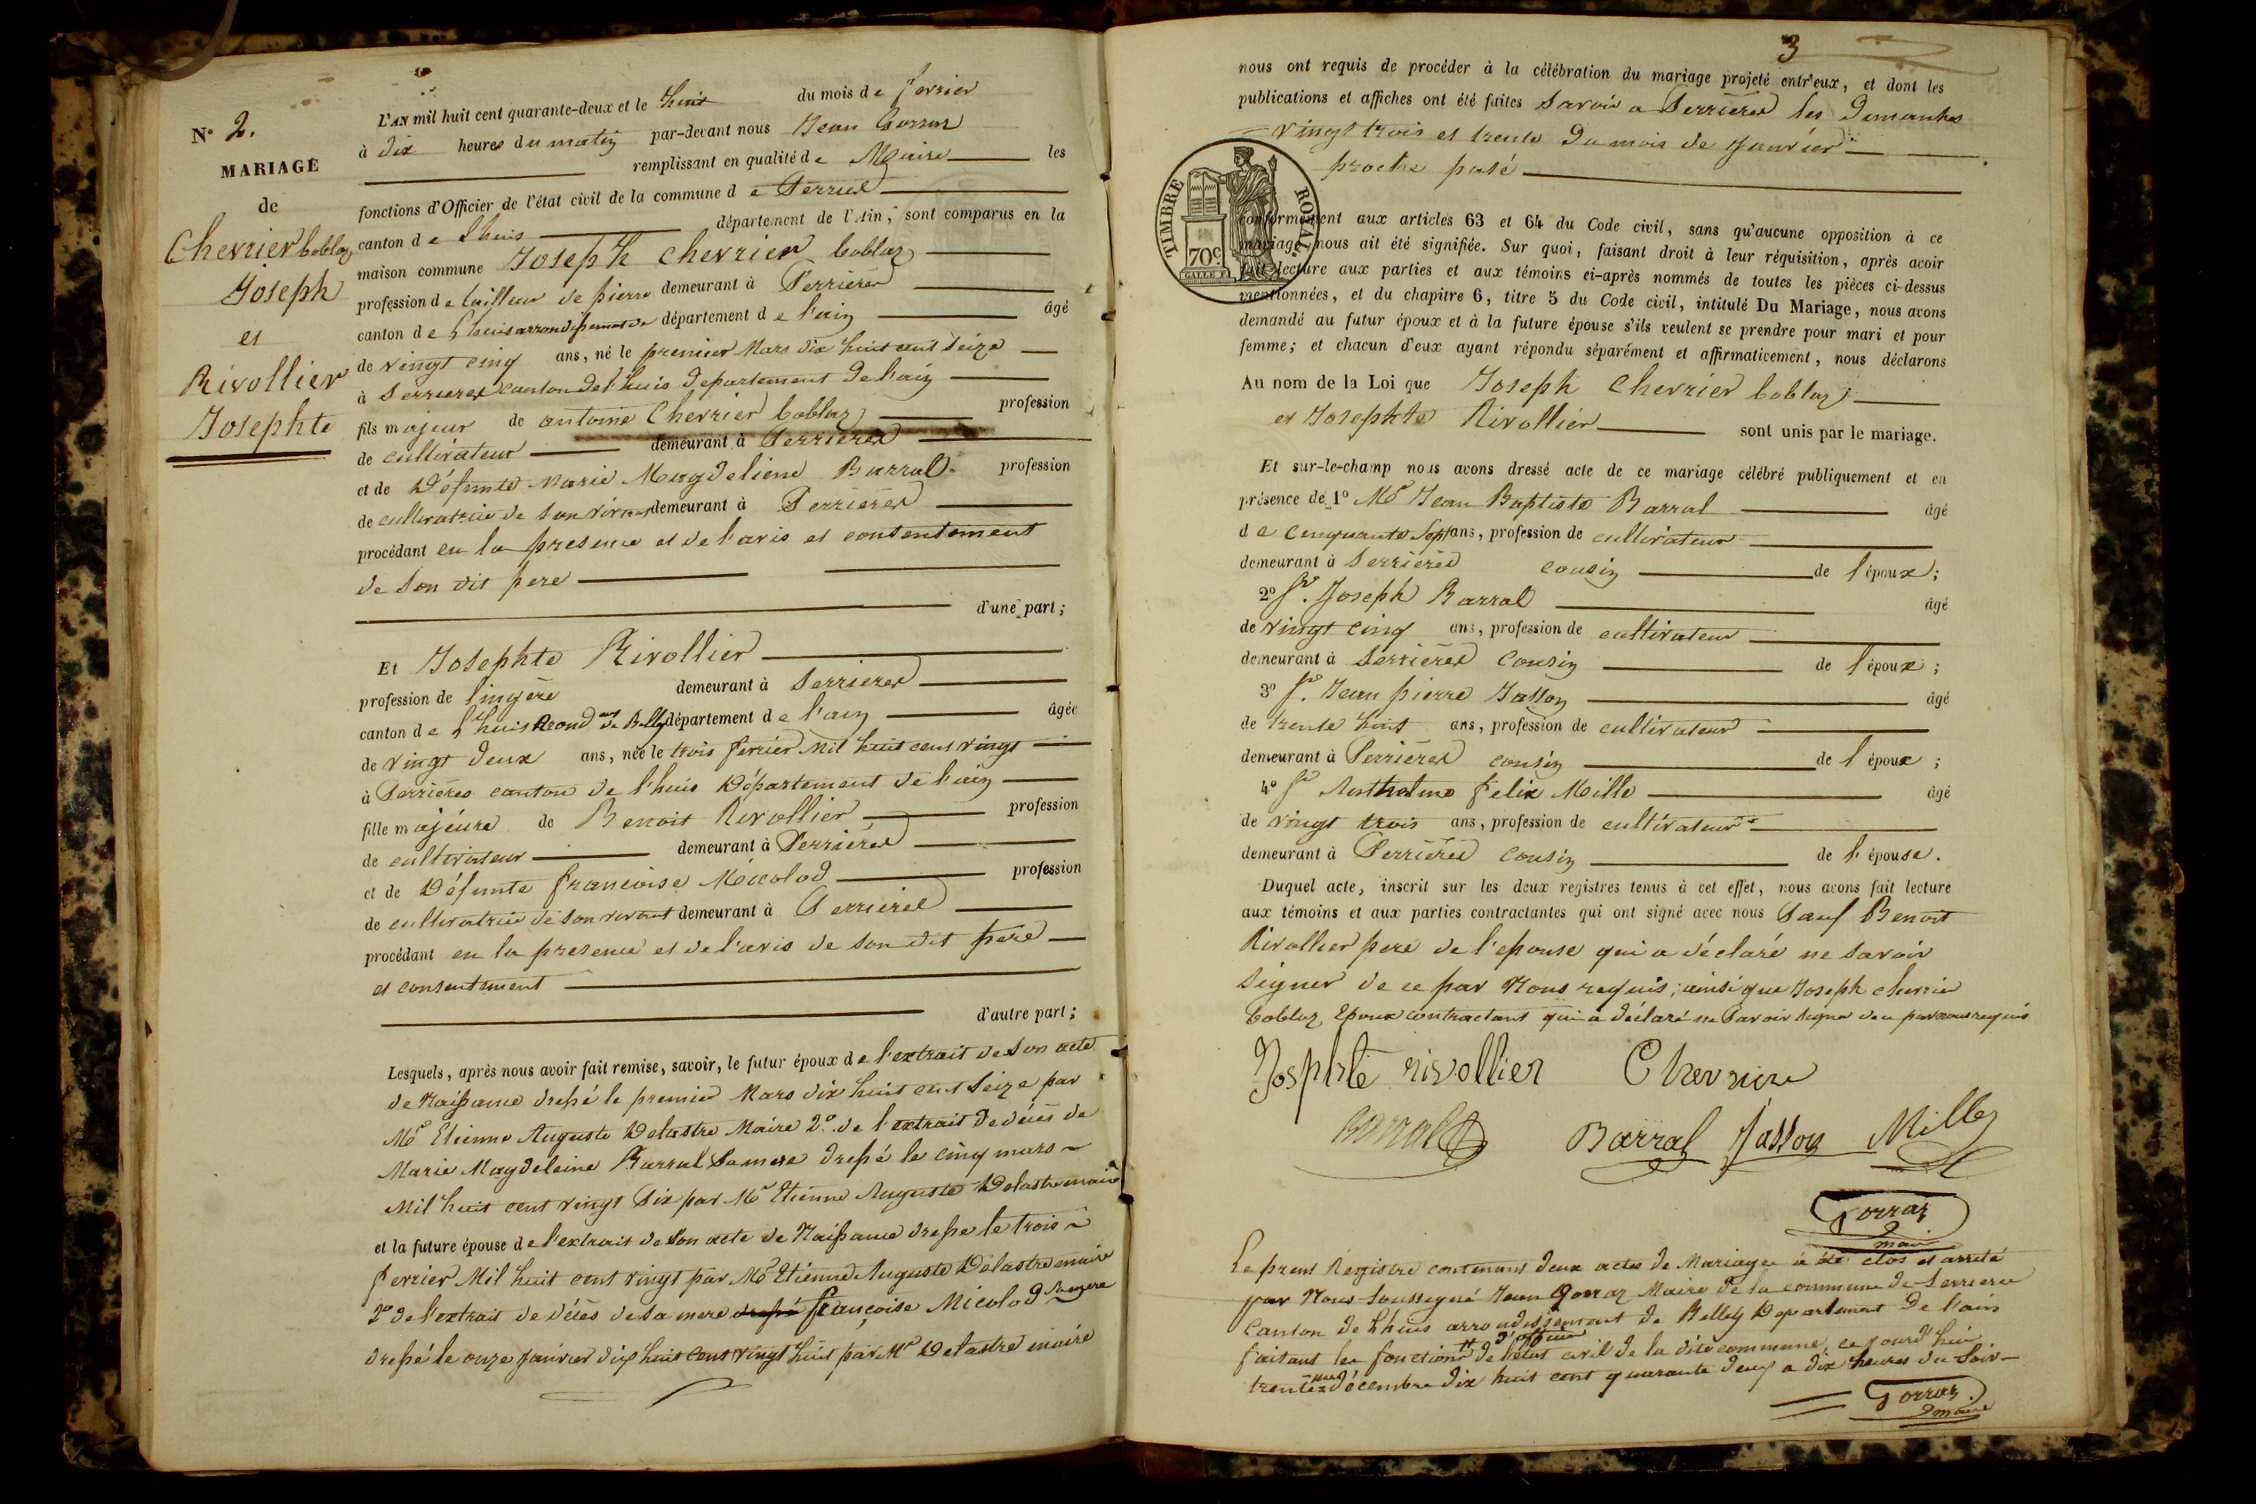 N° 2.
MARIAGE
de
Chevrier Coblaz
Joseph
et
Rivollier
Josephte
L'AN mil huit cent quarante-deux et le huit du mois de fevrier
à dix heures du matin par-devant nous Jean Gorraz
remplissant en qualité de Maire les
fonctions d'Officier de l'état civil de la commune de Serrieres
canton de Lhuis département de l'Ain, sont comparus en la
maison commune Joseph Chevrier Coblaz
profession de tailleur de pierre demeurant à Serrieres
canton de Lhuis arrondissement de département de l'ain âgé
de vingt cinq ans, né le premier Mars dix huit cent seize
à Serrieres canton de l'huis departement de l'ain
fils majeur de antoine Chevrier Coblaz profession
de cultivateur demeurant à Serrieres
et de Défunte Marie Magdeliene Barral profession
de cultivatrice de son vivant demeurant à Serrieres
procédant en la presence et de l'avis et consentement
de son dit pere
d'une part;
Et Josephte Rivollier
profession de lingère demeurant à Serrieres
canton de l'huis Arond.ent de Belley département de l'ain âgée
de vingt deux ans, née le trois fevrier Mil huit cent vingt
à Serrières canton de l'huis Département de l'ain
fille majeure de Benoit Rivollier profession
de cultivateur demeurant à Serrières
et de Défunte francoise Micolod profession
de cultivatrice de son vivant demeurant à Serrieres
procédant en la presence et de l'avis de son dit pere
et consentement
d'autre part;
Lesquels, après nous avoir fait remise, savoir, le futur époux de l'extrait de son acte
de Naissance dressé le premier Mars dix huit cent seize par
Mr Etienne Auguste Delastre Maire 2° de l'extrait de décès de
Marie Magdeleine Barral sa mere dressé le cinq mars
Mil huit cent vingt six par Mr Etienne Auguste Delastre maire
et la future épouse de l'extrait de son acte de Naissance dressé le trois
fevrier Mil huit cent vingt par Mr Etienne Auguste Delastre maire
2° de l'extrait de décès de sa mere dressé françoise Micolod sa mere
dressé le onze janvier dix huit cent vingt huit par Mr Delastre maire
3
nous ont requis de procéder à la célébration du mariage projeté entr'eux, et dont les
publications et affiches ont été faites savoir a Serrieres les Dimanches
vingt trois et trente du mois de Janvier
proche passé
TIMBRE ROYAL.
70c
conformément aux articles 63 et 64 du Code civil, sans qu'aucune opposition à ce
mariage nous ait été signifiée. Sur quoi, faisant droit à leur réquisition, après avoir
fait lecture aux parties et aux témoins ci-après nommés de toutes les pièces ci-dessus
mentionnées, et du chapitre 6, titre 5 du Code civil, intitulé Du Mariage, nous avons
demandé au futur époux et à la future épouse s'ils veulent se prendre pour mari et pour
femme; et chacun d'eux ayant répondu séparément et affirmativement, nous déclarons
Au nom de la Loi que Joseph Chevrier Coblaz
et Josephte Rivollier sont unis par le mariage.
Et sur-le-champ nous avons dressé acte de ce mariage célébré publiquement et en
présence de 1° Mr Jean Baptiste Barral âgé
de cinquante sept ans, profession de cultivateur
demeurant à Serrieres cousin de l'époux;
2° Sr. Joseph Barral âgé
de vingt cinq ans, profession de cultivateur
demeurant à Serrières cousin de l'époux;
3° Sr. Jean pierre Jasson âgé
de trente huit ans, profession de cultivateur
demeurant à Serrieres cousin de l'époux;
4° Sr Anthelme felix Mille âgé
de vingt trois ans, profession de cultivateur
demeurant à Serrières cousin de l'épouse.
Duquel acte, inscrit sur les deux registres tenus à cet effet, nous avons fait lecture
aux témoins et aux parties contractantes qui ont signé avec nous sauf Benoit
Rivollier pere de l'epouse qui a déclaré ne savoir
signer de ce par Nous requis; ainsi que Joseph chevrier
Coblaz Epoux contractant qui a déclaré ne savoir signer de ce par nous requis
Josphte rivollier Chevriere
Barral Barral Jasson Mille
Gorraz
maire
Le present Registre contenant deux actes de Mariage a été clos et arreté
par Nous soussigné Jean Gorraz Maire de la commune de Serrieres
Canton de Lhuis arrondissement de Belley Departement de l'ain
faisant les fonctions d'officier de l'état civil de la dite commune, ce jourd'hui
trente un décembre dix huit cent quarante deux a dix heures du soir
Gorraz
maire